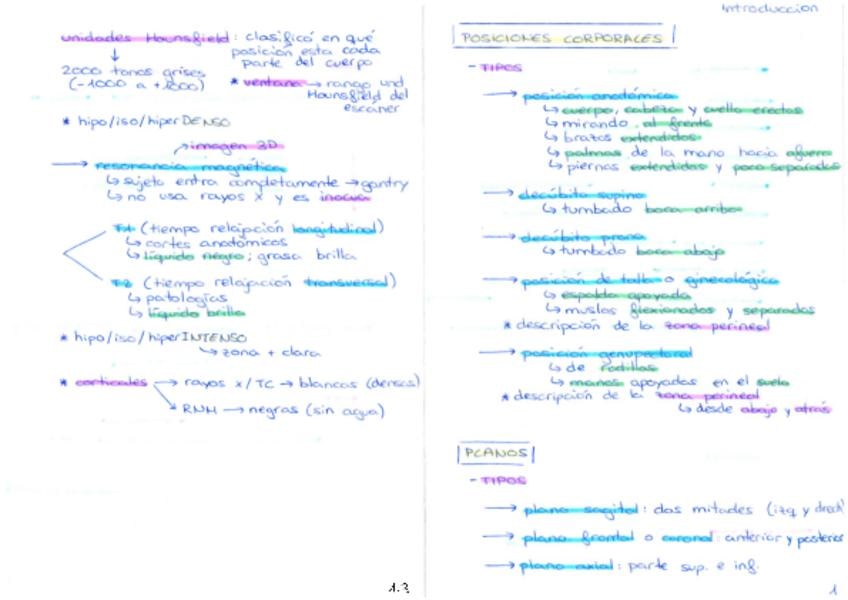 unidades Hounsfield: clasificó en qué
posición esta cada
parte del cuerpo
↓
2000 tonos grises
(-1000 a +1000)
* ventana → rango und
Hounsfield del
escáner
* hipo/iso/hiperDENSO
↗ imagen 3D
→ resonancia magnética
↳ sujeto entra completamente → gantry
↳ no usa rayos x y es inocua
T1 (tiempo relajación longitudinal)
↳ cortes anatómicos
↳ líquido negro; grasa brilla
T2 (tiempo relajación transversal)
↳ patologías
↳ líquido brilla
* hipo/iso/hiperINTENSO
↳ zona + clara
* corticales → rayos x/TC → blancas (densas)
→ RNM → negras (sin agua)
1.3
Introducción
POSICIONES CORPORALES
- TIPOS
→ posición anatómica
↳ cuerpo, cabeza y cuello erectos
↳ mirando al frente
↳ brazos extendidos
↳ palmas de la mano hacia afuera
↳ piernas extendidas y poco separadas
→ decúbito supino
↳ tumbado boca arriba
→ decúbito prono
↳ tumbado boca abajo
→ posición de talla o ginecológica
↳ espalda apoyada
↳ muslos flexionados y separados
* descripción de la zona perineal
→ posición genupectoral
↳ de rodillas
↳ manos apoyadas en el suelo
* descripción de la zona perineal
↳ desde abajo y atrás
PLANOS
- TIPOS
→ plano sagital: dos mitades (izq y drech
→ plano frontal o coronal: anterior y posterior
→ plano axial: parte sup. e inf.
1